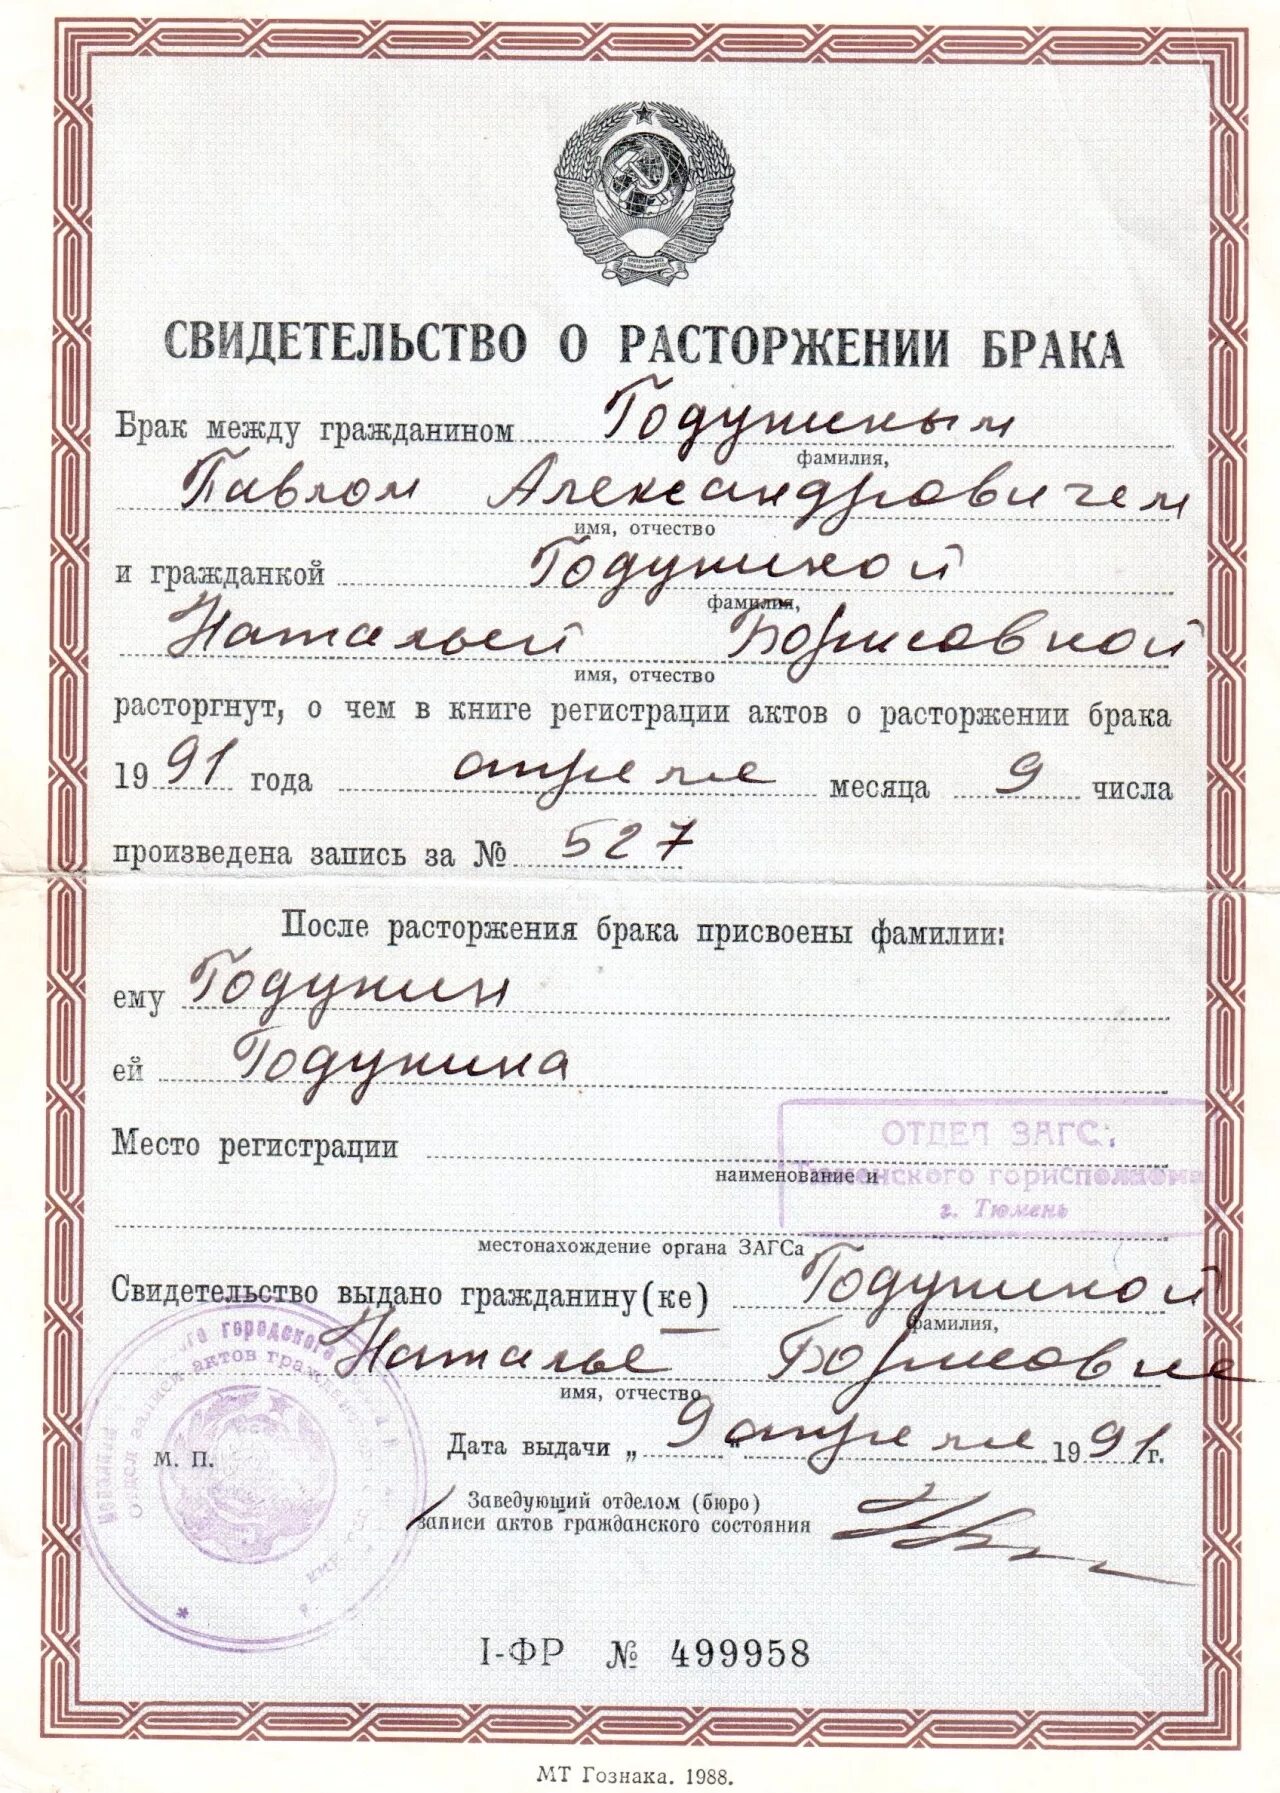 СВИДЕТЕЛЬСТВО О РАСТОРЖЕНИИ БРАКА
Брак между гражданином Годуниным
фамилия,
Павлом Александровичем
имя, отчество
и гражданкой Годуниной
фамилия,
Натальей Борисовной
имя, отчество
расторгнут, о чем в книге регистрации актов о расторжении брака
1991 года апреле месяца 9 числа
произведена запись за № 527
После расторжения брака присвоены фамилии:
ему Годунин
ей Годунина
ОТДЕЛ ЗАГС
Место регистрации
наименование и
Тюменского горисполкома
г. Тюмень
местонахождение органа ЗАГСа
Свидетельство выдано гражданину(ке) Годуниной
фамилия,
Наталье Борисовне
имя, отчество
Дата выдачи „ 9 " апреля 1991 г.
М. П.
городского
Отдел записи актов гражданского
Заведующий отделом (бюро)
записи актов гражданского состояния
I-ФР № 499958
МТ Гознака. 1988.